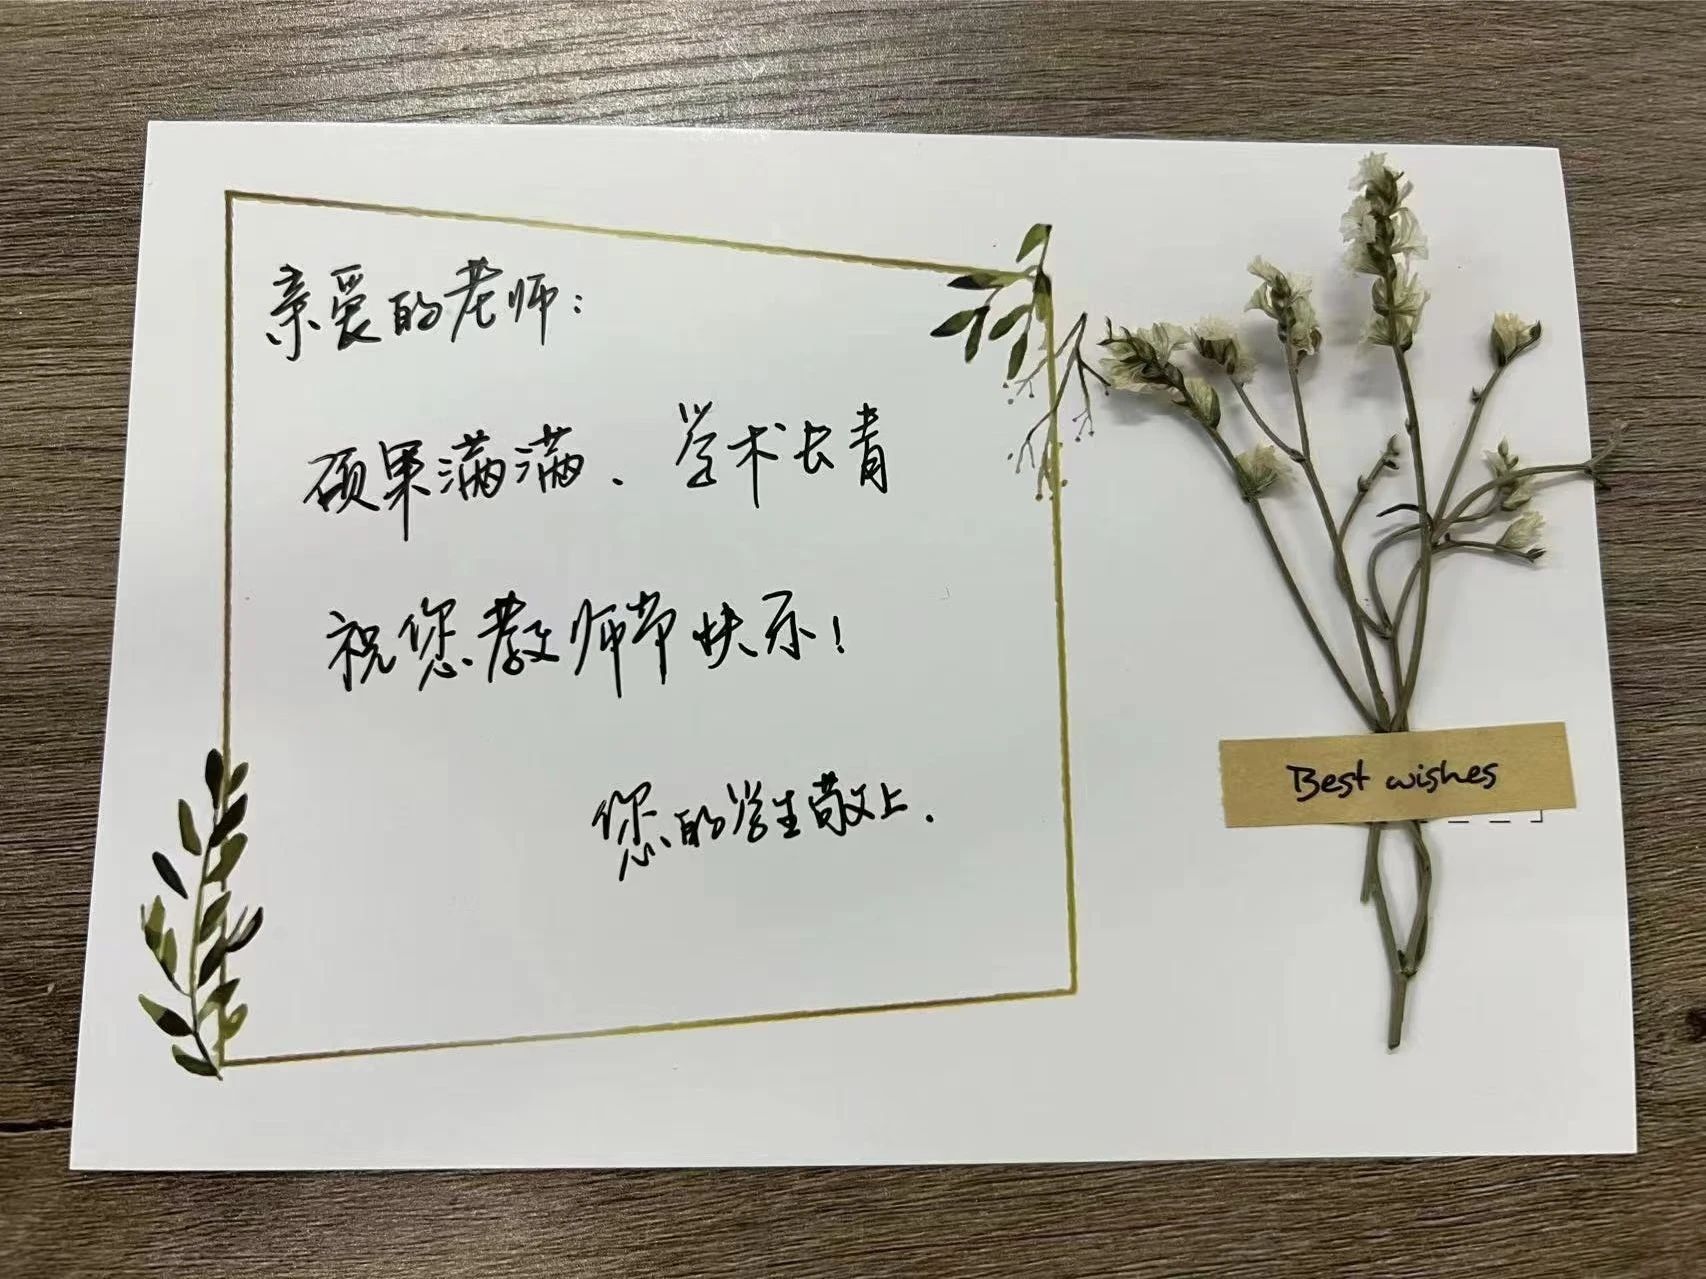 亲爱的老师：
硕果满满、学术长青
祝您教师节快乐！
您的学生敬上.
Best wishes